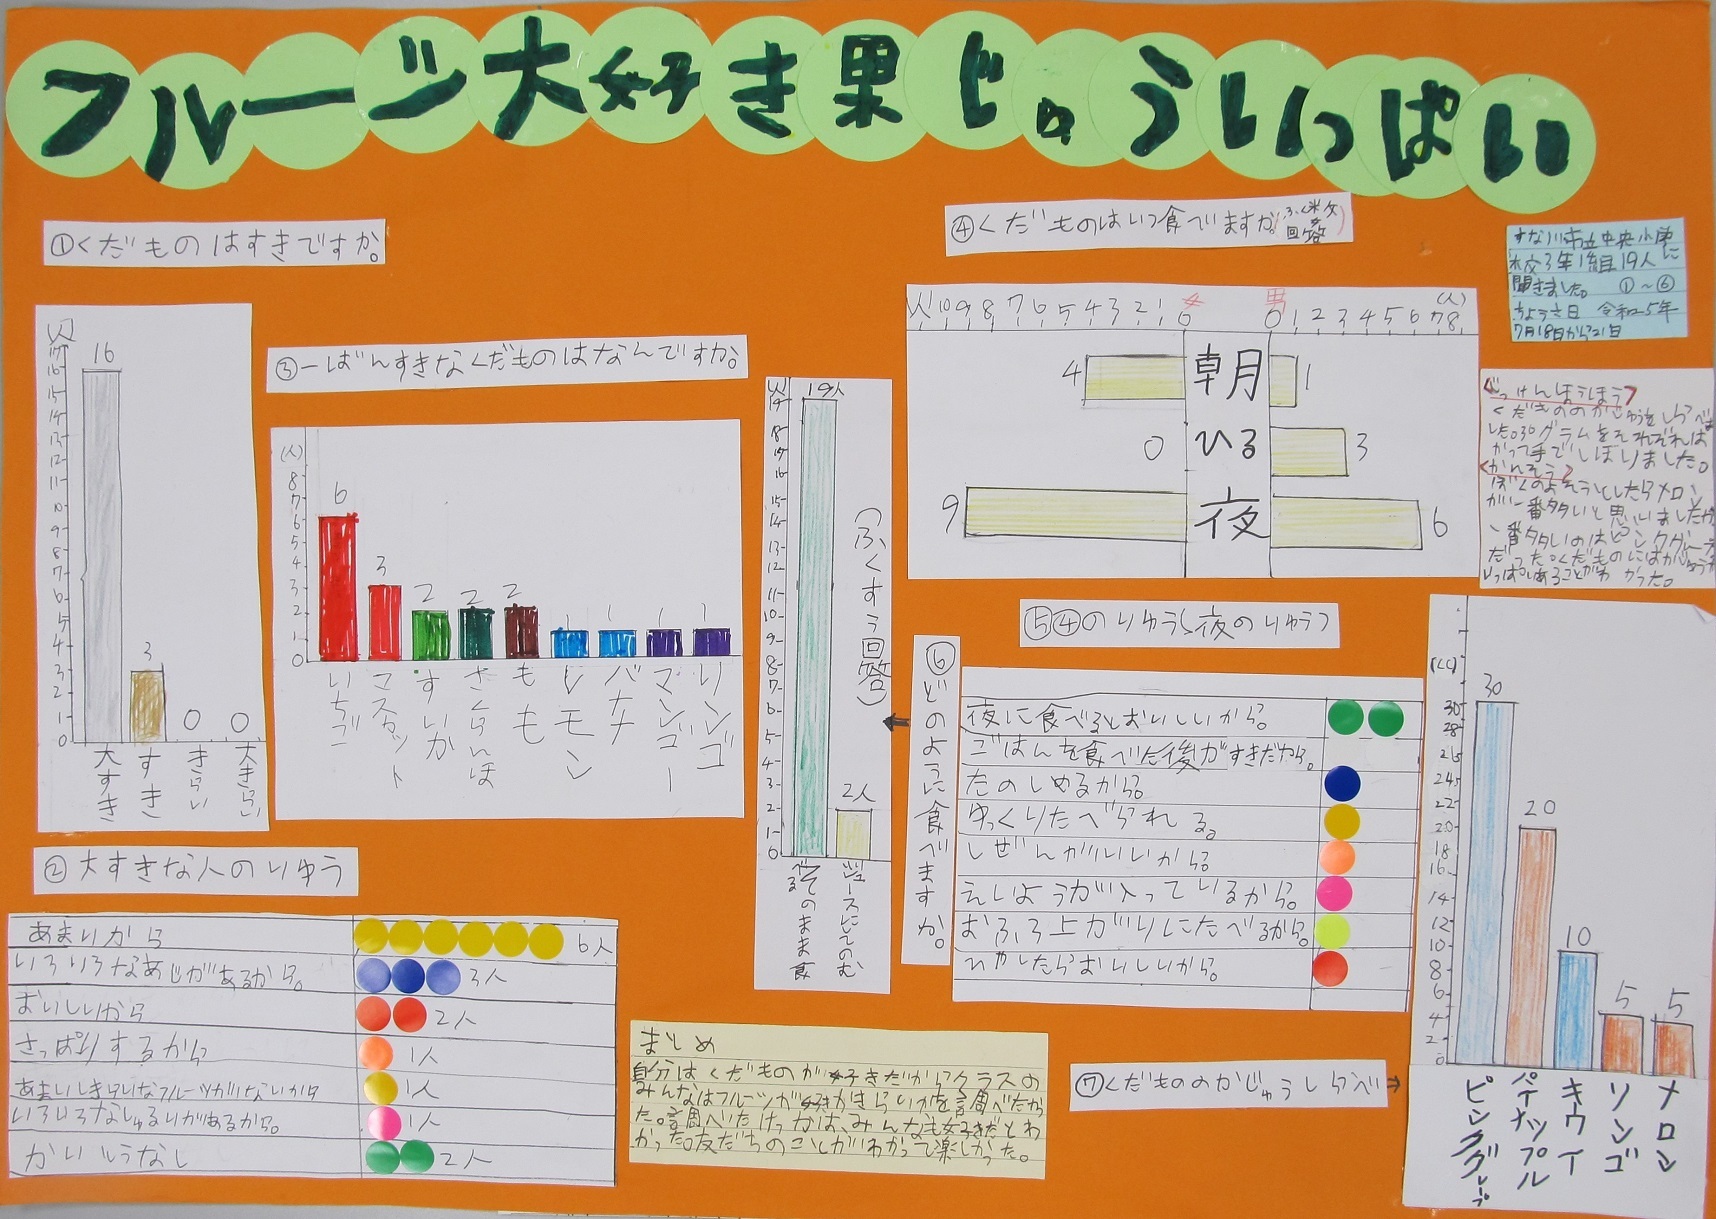 フルーツ大好き果じゅういっぱい
①くだものはすきですか。
(人)
17
16
15
14
13
12
11
10
9
8
7
6
5
4
3
2
1
0
16
3
0
0
大すき
すき
きらい
大きらい
②大すきな人のりゆう
あまいから
6人
いろいろなあじがあるから。
3人
おいしいから
2人
さっぱりするから
1人
あまいしきらいなフルーツがないから
1人
いろいろなしゅるいがあるから。
1人
かいとうなし
2人
③一ばんすきなくだものはなんですか。
(人)
8
7
6
5
4
3
2
1
0
6
3
2
2
2
1
1
1
1
いちご
マスカット
すいか
さくらんぼ
もも
レモン
バナナ
マンゴー
リンゴ
④くだものはいつ食べますか。(ふく数回答)
(人)
10 9 8 7 6 5 4 3 2 1 0
女
男
0 1 2 3 4 5 6 7 8
(人)
4
朝
1
0
ひる
3
9
夜
6
⑤④のりゆう(夜のりゆう)
夜に食べるとおいしいから。
ごはんを食べた後がすきだから。
たのしめるから。
ゆっくりたべられる。
しぜんがいいから。
えいようが入っているから。
おふろ上がりにたべるから。
ひやしたらおいしいから。
⑥どのように食べますか。
(ふくすう回答)
(人)
19
18
17
16
15
14
13
12
11
10
9
8
7
6
5
4
3
2
1
0
19人
2人
そのまま食べる
ジュースにしてのむ
⑦くだもののかじゅうしらべ→
(cc)
30
28
26
24
22
20
18
16
14
12
10
8
6
4
2
0
30
20
10
5
5
ピンクグレープ
パイナップル
キウイ
リンゴ
メロン
すな川市立中央小学
校3年1組19人に
聞きました。 ①~⑥
ちょうさ日 令和5年
7月18日から21日
<じっけんほうほう>
くだもののかじゅうをしらべま
した。30グラムをそれぞれは
かって手でしぼりました。
<かんそう>
ぼくのよそうとしたらメロン
が一番多いと思いましたが
一番多いのはピンクグレープ
だった。くだものにはかじゅうが
いっぱいあることがわかった。
まとめ
自分はくだものが好きだからクラスの
みんなはフルーツが好きかきらいかを調べたかっ
た。調べたけっかは、みんなも好きだとわ
かった。友だちのことがわかって楽しかった。